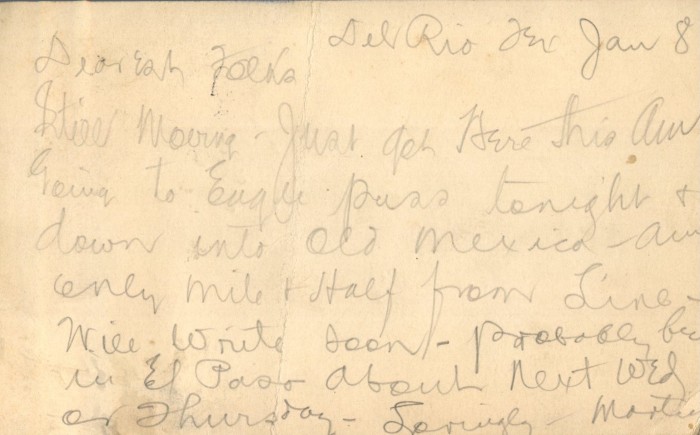 Del Rio Tex Jan 8
Dearest Folks
Still Moving - Just got Here this Am
Going to Eagle pass tonight +
down into Old Mexico - am
only mile + Half from Line.
Will Write soon - probably be
in El Paso about Next Wed
or Thursday - Lovingly - Martin